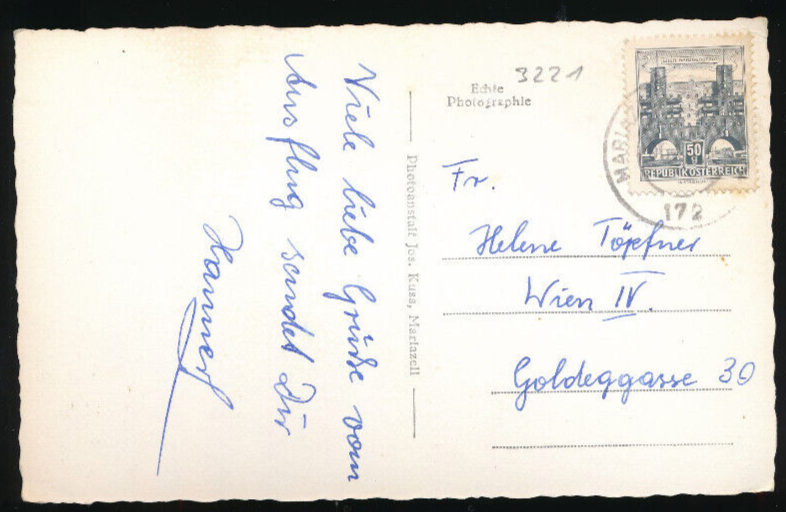 Viele liebe Grüße vom
Ausflug sendet Dir
Hannerl
Photoanstalt Jos. Kuss, Mariazell
Echte
Photographie
3221
50
g
REPUBLIK ÖSTERREICH
MARI
172
Fr.
Helene Töpfner
Wien IV.
Goldeggasse 30